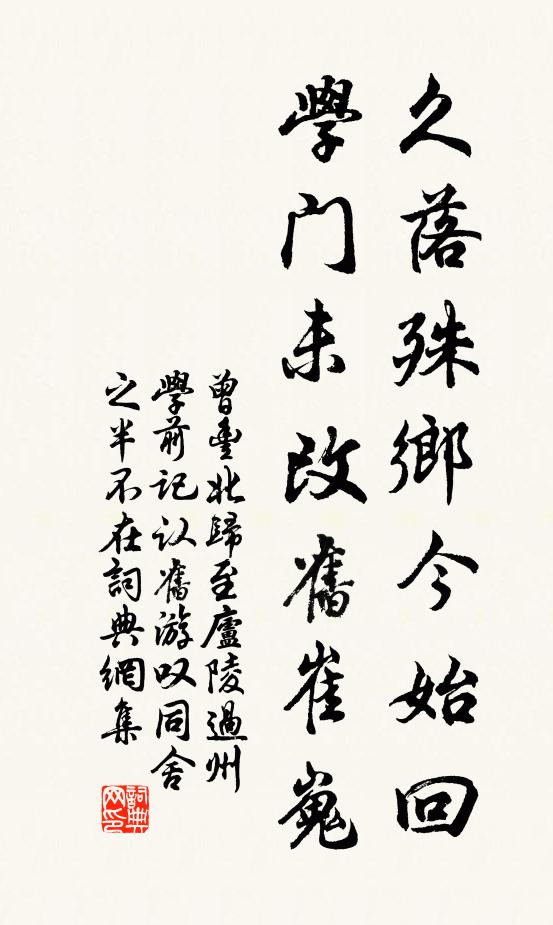 久落殊鄉今始回
學門未改舊崔嵬
曾豐北歸至廬陵過州
學前記认舊游叹同舍
之半不在詞典網集
詞典
网印